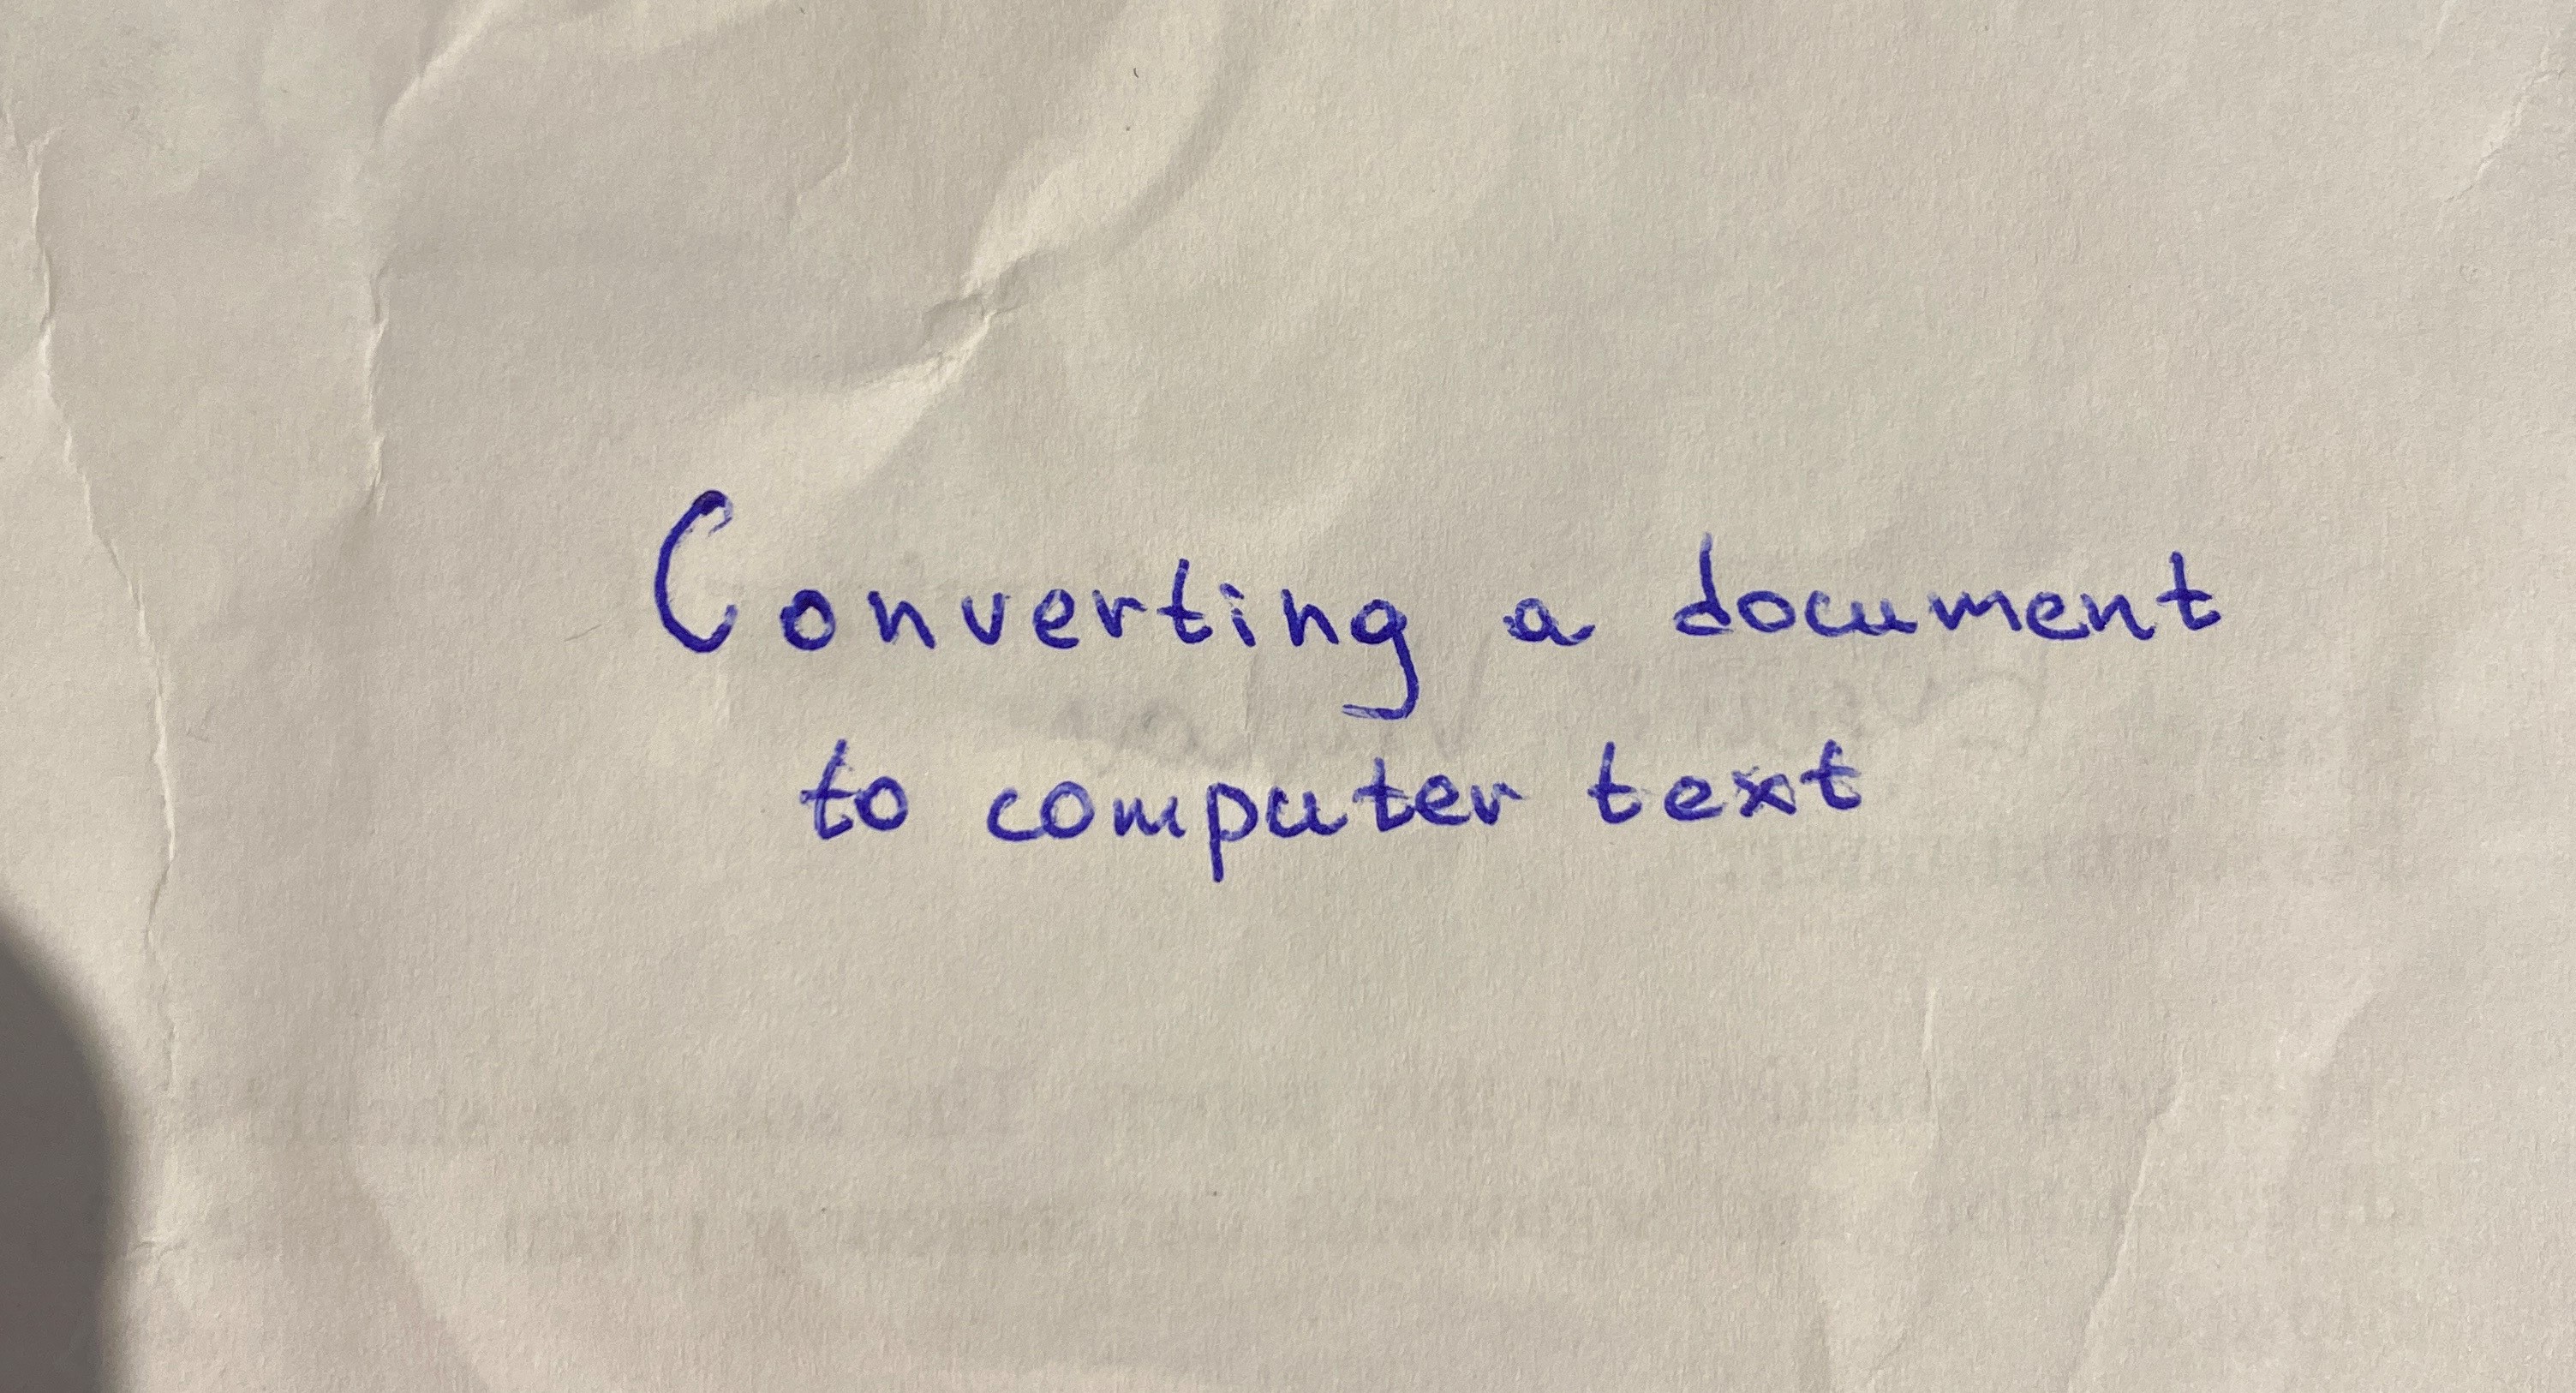 Converting a document
to computer text